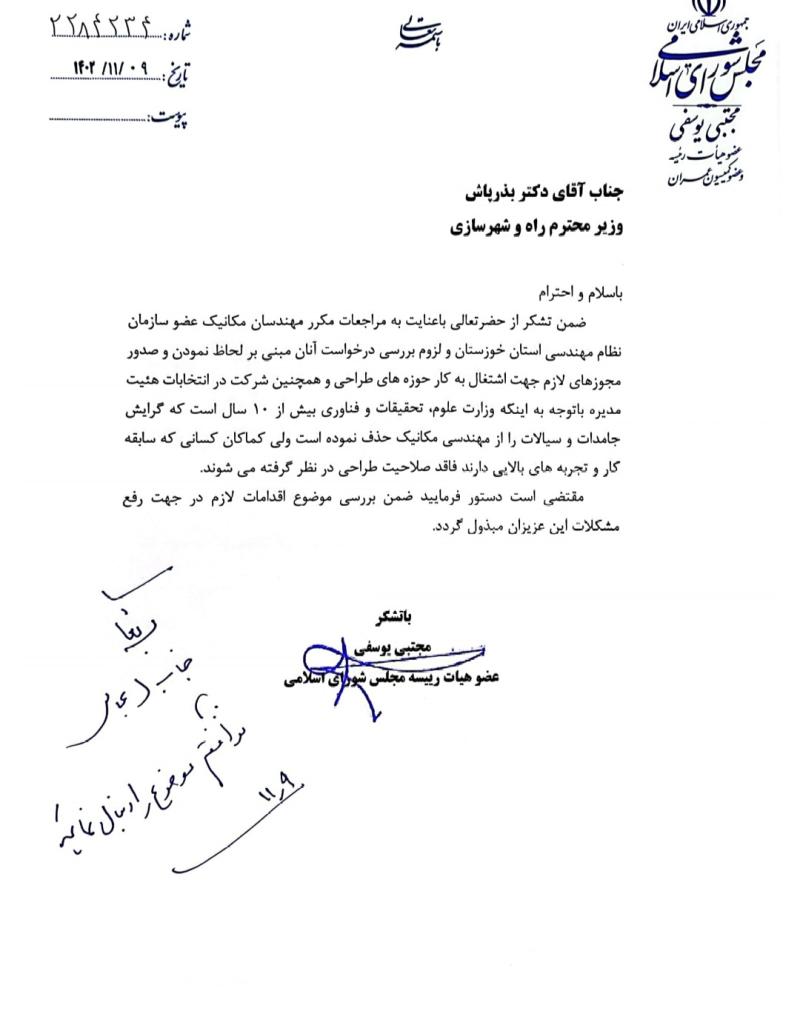 جمهوری اسلامی ایران
مجلس شورای اسلامی
مجتبی یوسفی
عضو هیأت رئیسه
و عضو کمیسیون عمران
باسمه تعالی
شماره: ۲۲۸۴۲۳۴
تاریخ: ۱۴۰۲/۱۱/۰۹
پیوست:
جناب آقای دکتر بذرپاش
وزیر محترم راه و شهرسازی
باسلام و احترام
ضمن تشکر از حضرتعالی باعنایت به مراجعات مکرر مهندسان مکانیک عضو سازمان
نظام مهندسی استان خوزستان و لزوم بررسی درخواست آنان مبنی بر لحاظ نمودن و صدور
مجوزهای لازم جهت اشتغال به کار حوزه های طراحی و همچنین شرکت در انتخابات هئیت
مدیره باتوجه به اینکه وزارت علوم، تحقیقات و فناوری بیش از ۱۰ سال است که گرایش
جامدات و سیالات را از مهندسی مکانیک حذف نموده است ولی کماکان کسانی که سابقه
کار و تجربه های بالایی دارند فاقد صلاحیت طراحی در نظر گرفته می شوند.
مقتضی است دستور فرمایید ضمن بررسی موضوع اقدامات لازم در جهت رفع
مشکلات این عزیزان مبذول گردد.
باتشکر
مجتبی یوسفی
عضو هیات رییسه مجلس شورای اسلامی
جناب
موضوع را دنبال نمائید
۱۱/۹